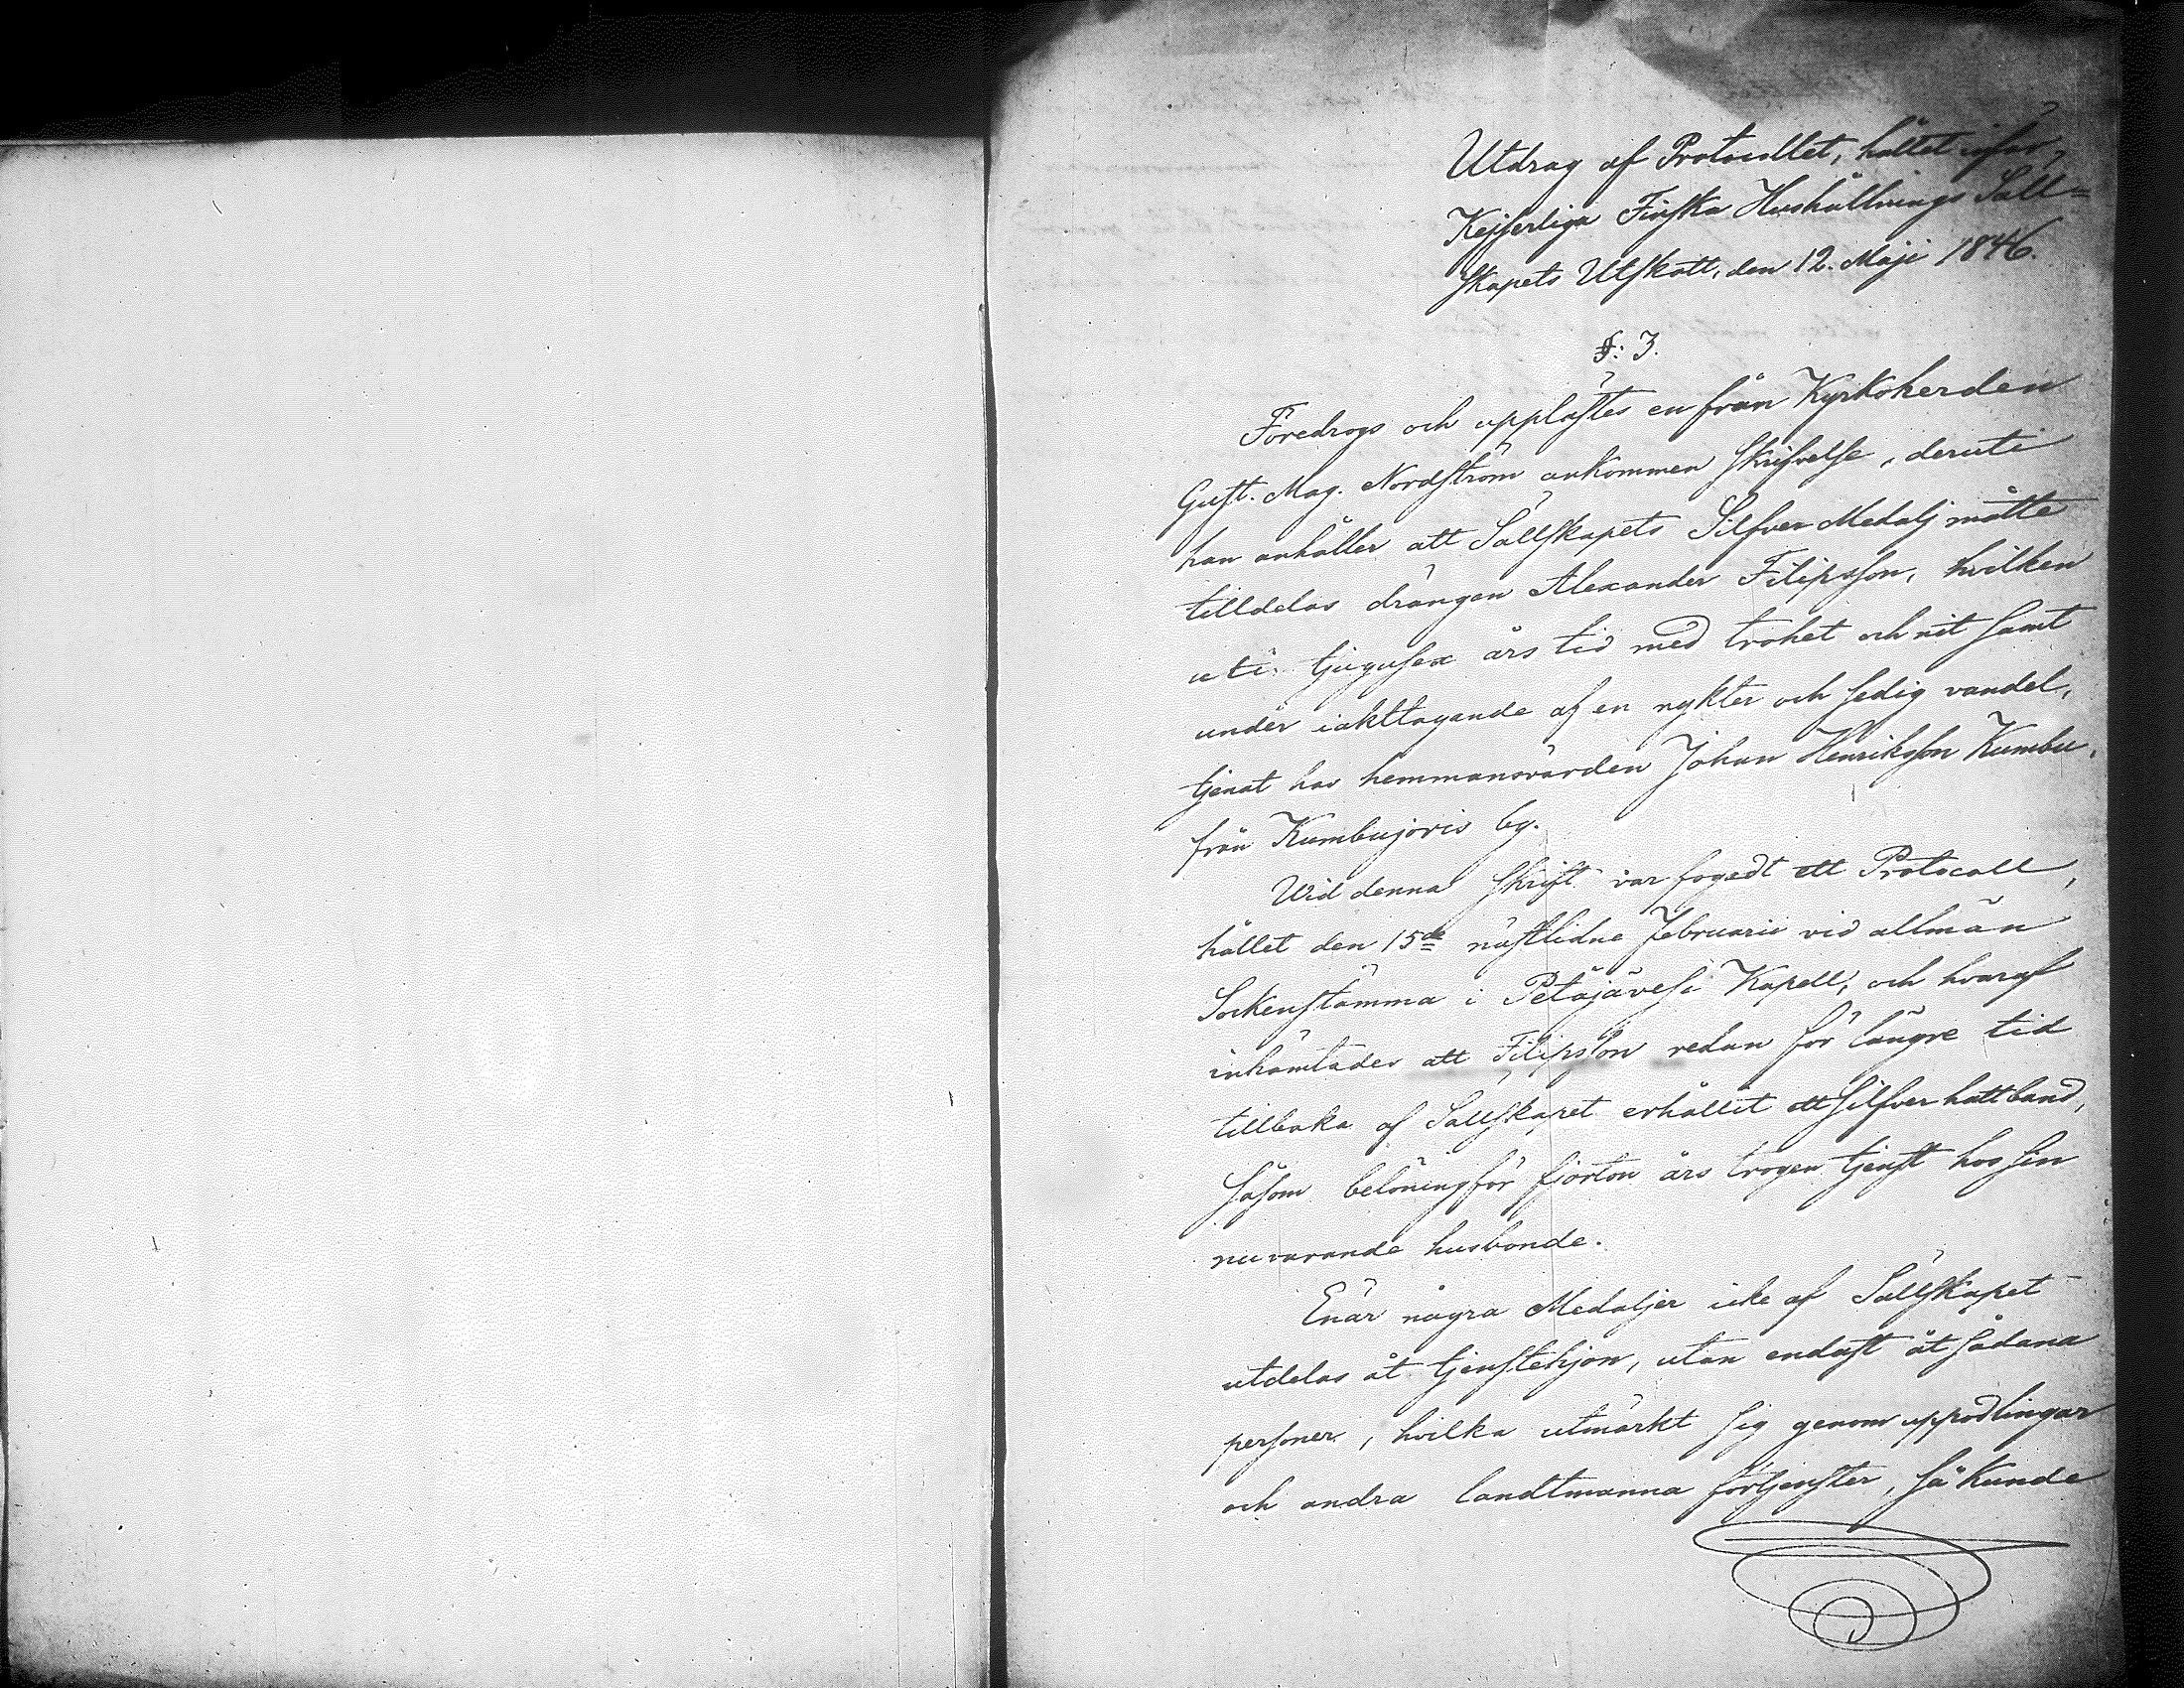 Utdrag af Protocollet, hållet inför
Kejserliga Finska Hushållnings Säll=
skapets Utskott, den 12. Maji 1846.
§: 3.
Föredrogs och upplästes en från Kyrkoherden
Gust. Mag. Nordström ankommen skrifvelse, deruti
han anhåller att Sällskapets Silfver Medalj måtte
tilldelas drängen Alexander Filipsson, hvilken
uti tjugusex års tid med trohet och nit samt
under iakttagande af en nykter och sedig vandel,
tjenat hos hemmansvärden Johan Henriksson Kumbu,
från Kumbujoris by.
Wid denna skrift var fogadt ett Protocoll,
hållet den 15de näſtlidne Februarii vid allmän
Sockenstämma i Petäjävesi Kapell, och hvaraf
inhämtades att Filipsson redan för längre tid
tillbaka af Sällskapet erhållit ett silfver hattband,
såsom belöning för fjorton års trogen tjenst hos sin
nuvarande husbonde.
Enär några Medaljer icke af Sällskapet
utdelas åt tjenstehjon, utan endast åt sådana
personer, hvilka utmärkt sig genom uppodlingar
och andra landtmanna förtjenster, så kunde